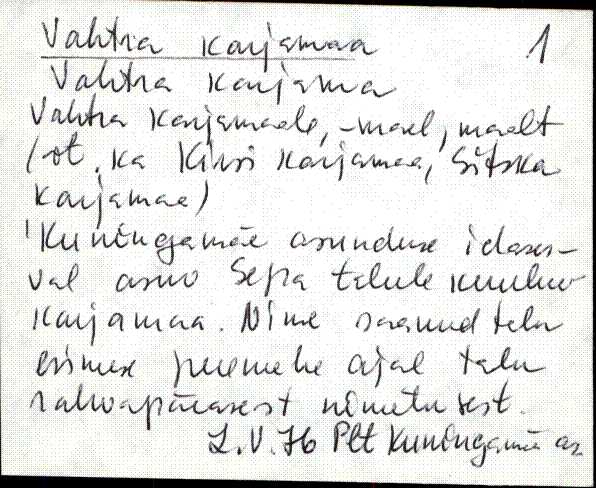 Vahtra karjamaa 1
Vahtra karjama
Vahtra karjamaale, -maal, maalt
(vt. ka Kirsi karjamaa, Sitska
karjamaa)
Kuningamäe asunduse idaser-
val asuv Sepa talule kuuluv
karjamaa. Nime saanud talu
esimese peremehe ajal talu
rahvapärasest nimetusest.
L.V.76 Plt Kuningamäe as.